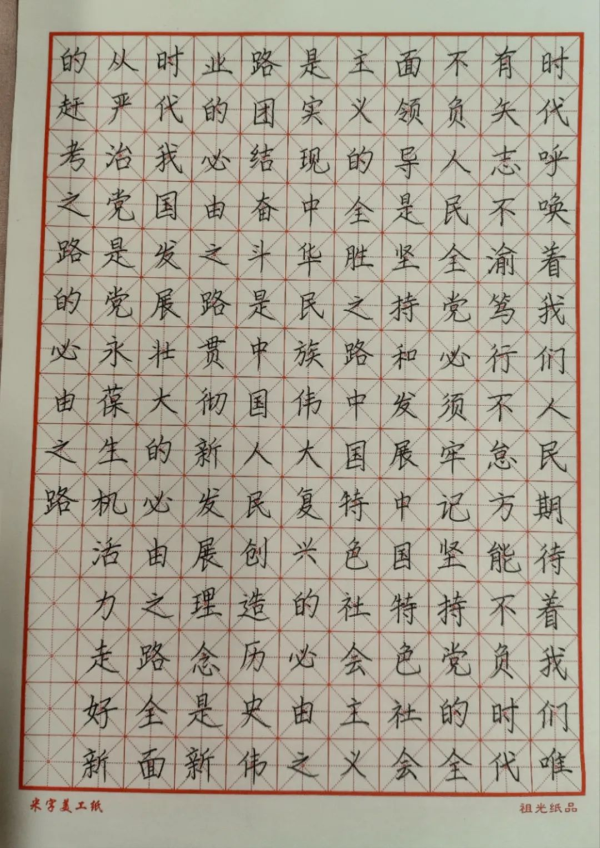 时代呼唤着我们人民期待着我们唯
有矢志不渝笃行不怠方能不负时代
不负人民全党必须牢记坚持党的全
面领导是坚持和发展中国特色社会
主义的全胜之路中国特色社会主义
是实现中华民族伟大复兴的必由之
路团结奋斗是中国人民创造历史伟
业的必由之路贯彻新发展理念是新
时代我国发展壮大的必由之路全面
从严治党是党永葆生机活力走好新
的赶考之路的必由之路
米字美工纸
祖光纸品